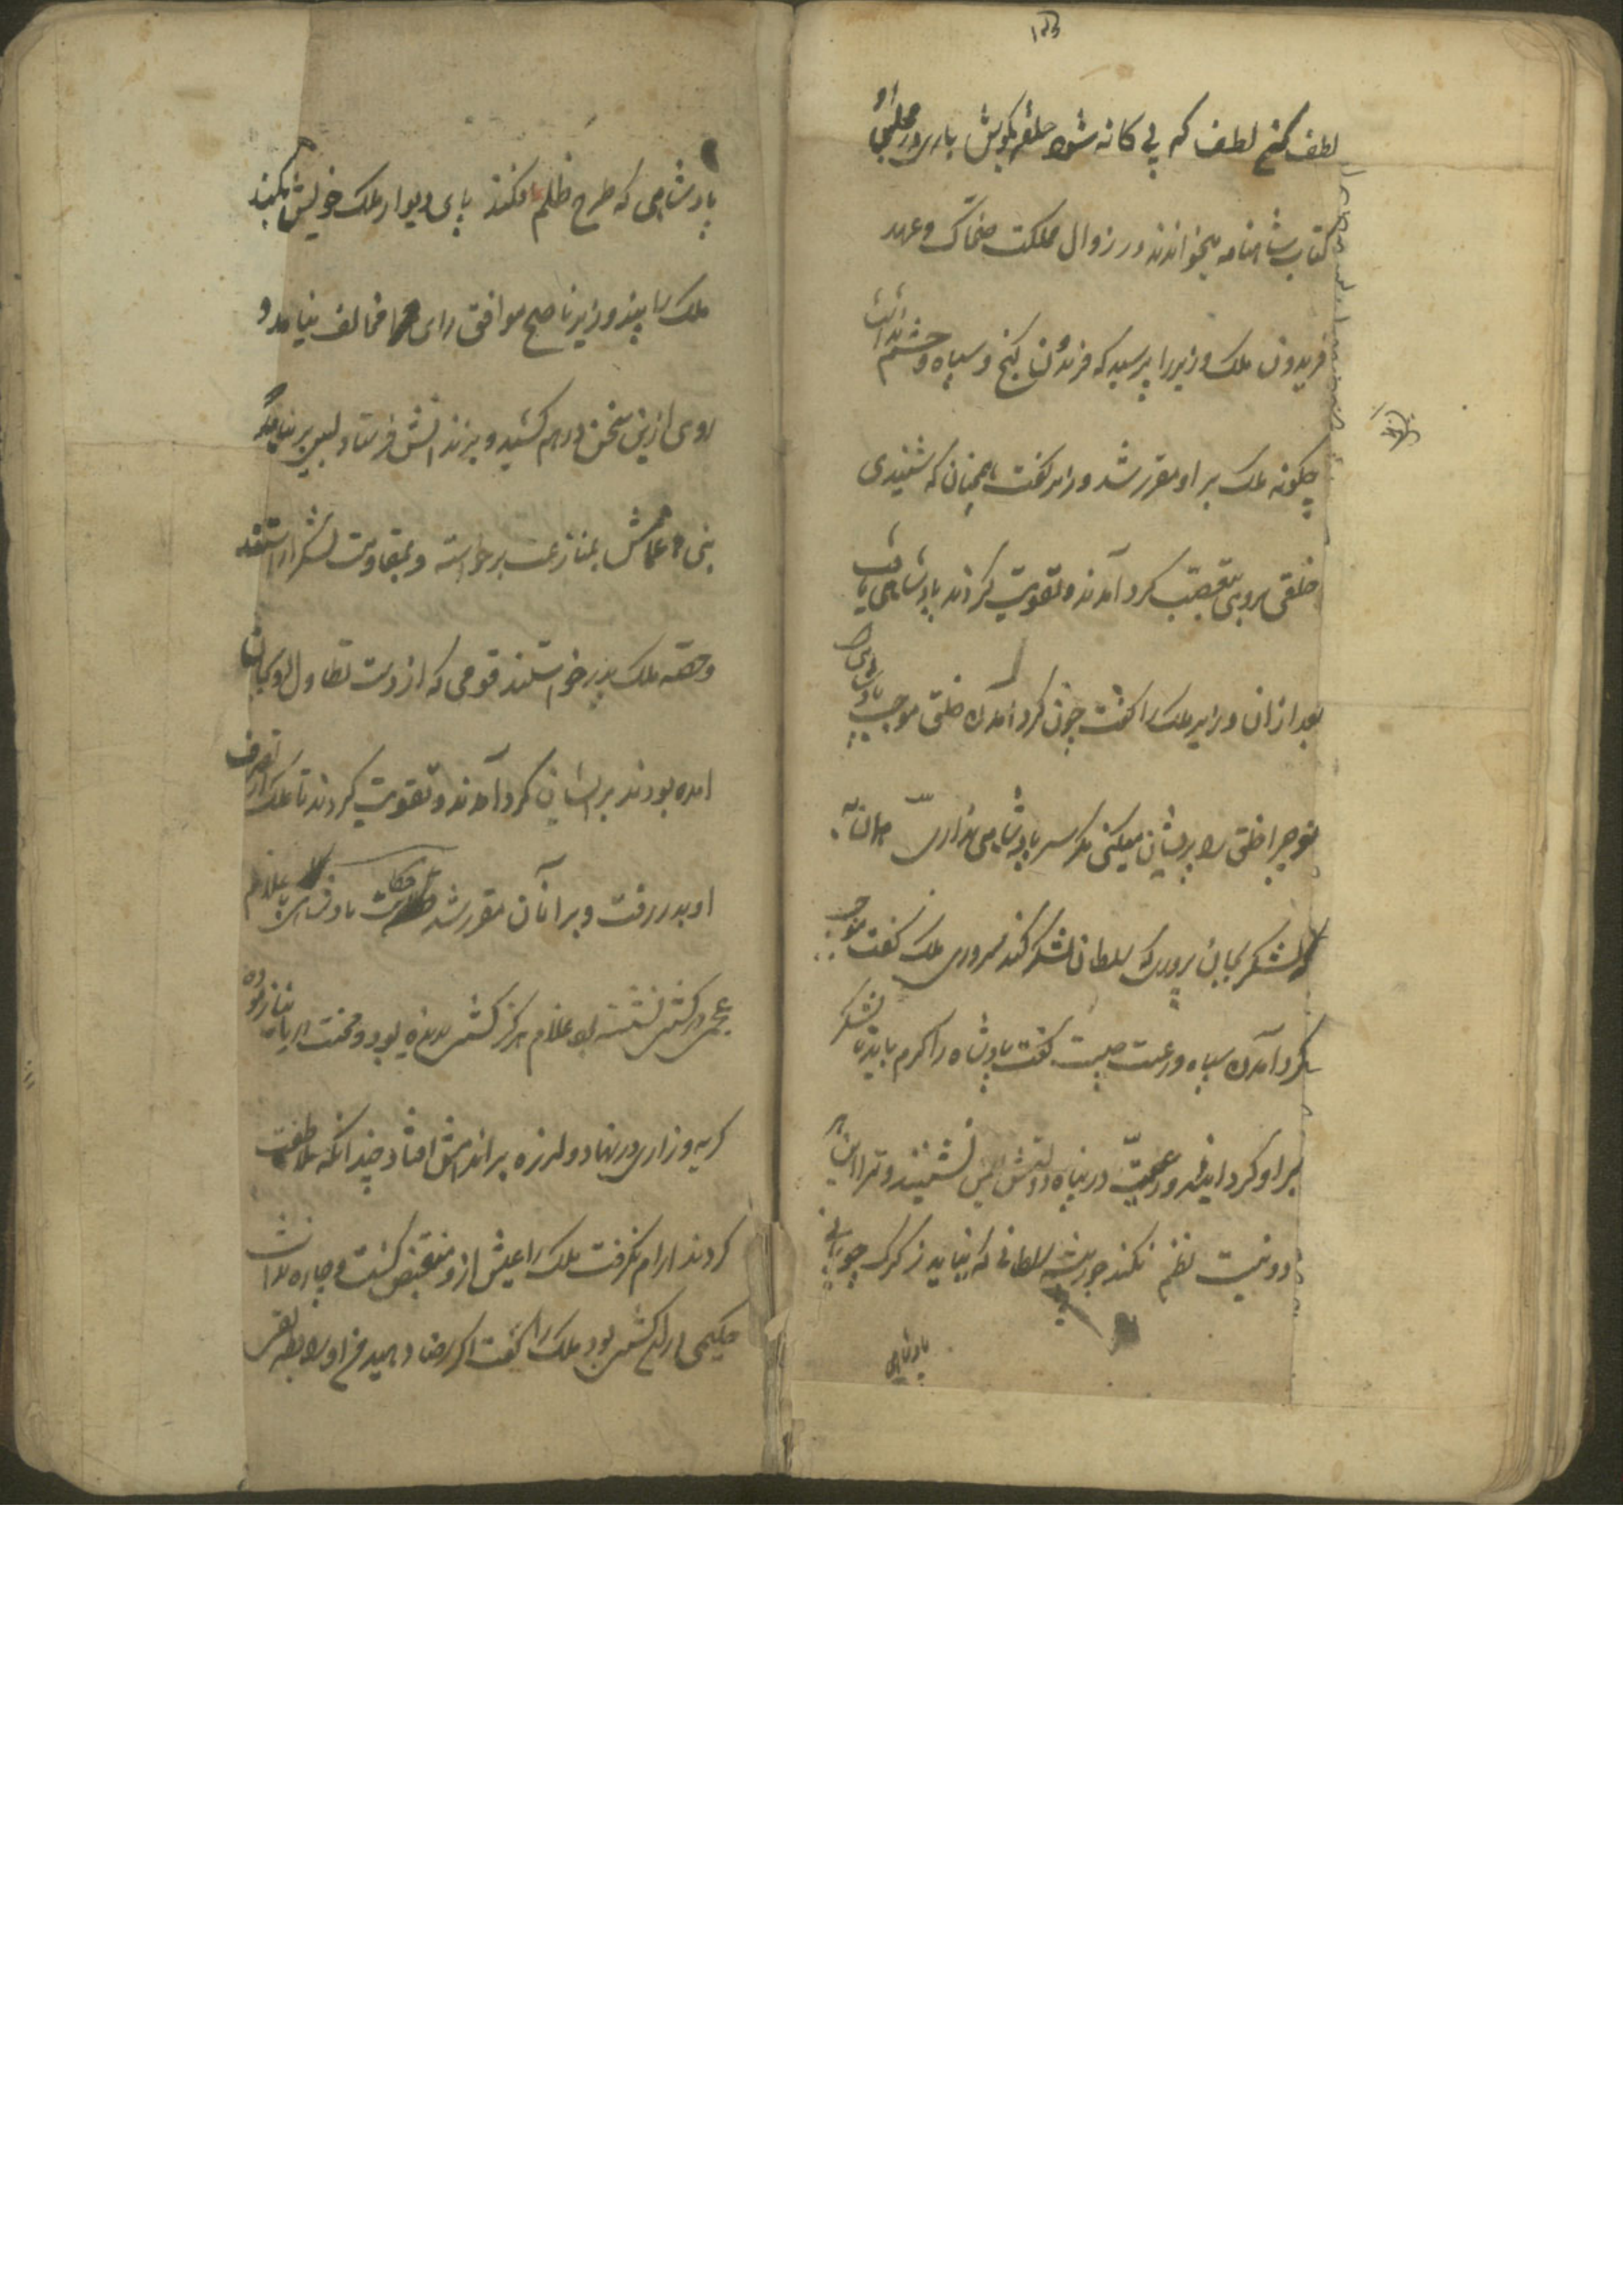 لطف کن لطف که بی کانه شود حلقه بکوش باری در مجلس او
کتاب شاهنامه میخواندند در زوال مملکت ضحاک و عهد
فریدون ملک وزیر را پرسید که فریدون کنج و سپاه و حشم نداشت
چکونه ملک بر او مقرر شد وزیر کفت همچنان که شنیدی
خلقی برو بتعصب کرد آمدند و تقویت کردند پادشاهی یافت
بعد از ان وزیر ملک را کفت چون کرد آمدن خلق موجب پادشاهی است
تو چرا خلق را پریشان میکنی مکر سر پادشاهی نداری همان به
که لشکر بجان پروری که سلطان بلشکر کند سروری ملک کفت موجب
کرد آمدن سپاه و رعیت چیست کفت پادشاه را کرم باید تا لشکر
بر او کرد ایند و رعیت در پناه دولتش ایمن نشینند و ترا این هر
دو نیست نظم نکند جور پیشه سلطانی که نیاید ز کرک چوپانی
پادشاهی
پادشاهی که طرح ظلم افکند پای دیوار ملک خویش بکند
ملک را پند وزیر ناصح موافق رای مخالف نیامد و
روی ازین سخن درهم کشید و بزندانش فرستاد بسی بر نیامد که
بنی اعمامش بمنازعت برخواسته و بمقاومت لشکر اراستند
و حقه ملک پدر خواستند قومی که از دست تطاول او بجان
امده بودند بر ایشان کرد آمدند و تقویت کردند تا ملک از تصرف
او بدر رفت و بر آنان مقرر شد حکایت پادشاهی با غلام
عجمی در کشتی نشسته بود غلام هرکز کشتی ندیده بود و محنت دریا نیازموده
کریه و زاری در نهاد و لرزه بر اندامش افتاد چندانکه ملاطفت
کردند ارام نکرفت ملک را عیش ازو منغص کشت و چاره ندانست
حکیمی در ان کشتی بود ملک را کفت اکر رضا دهید من او را بطریقی